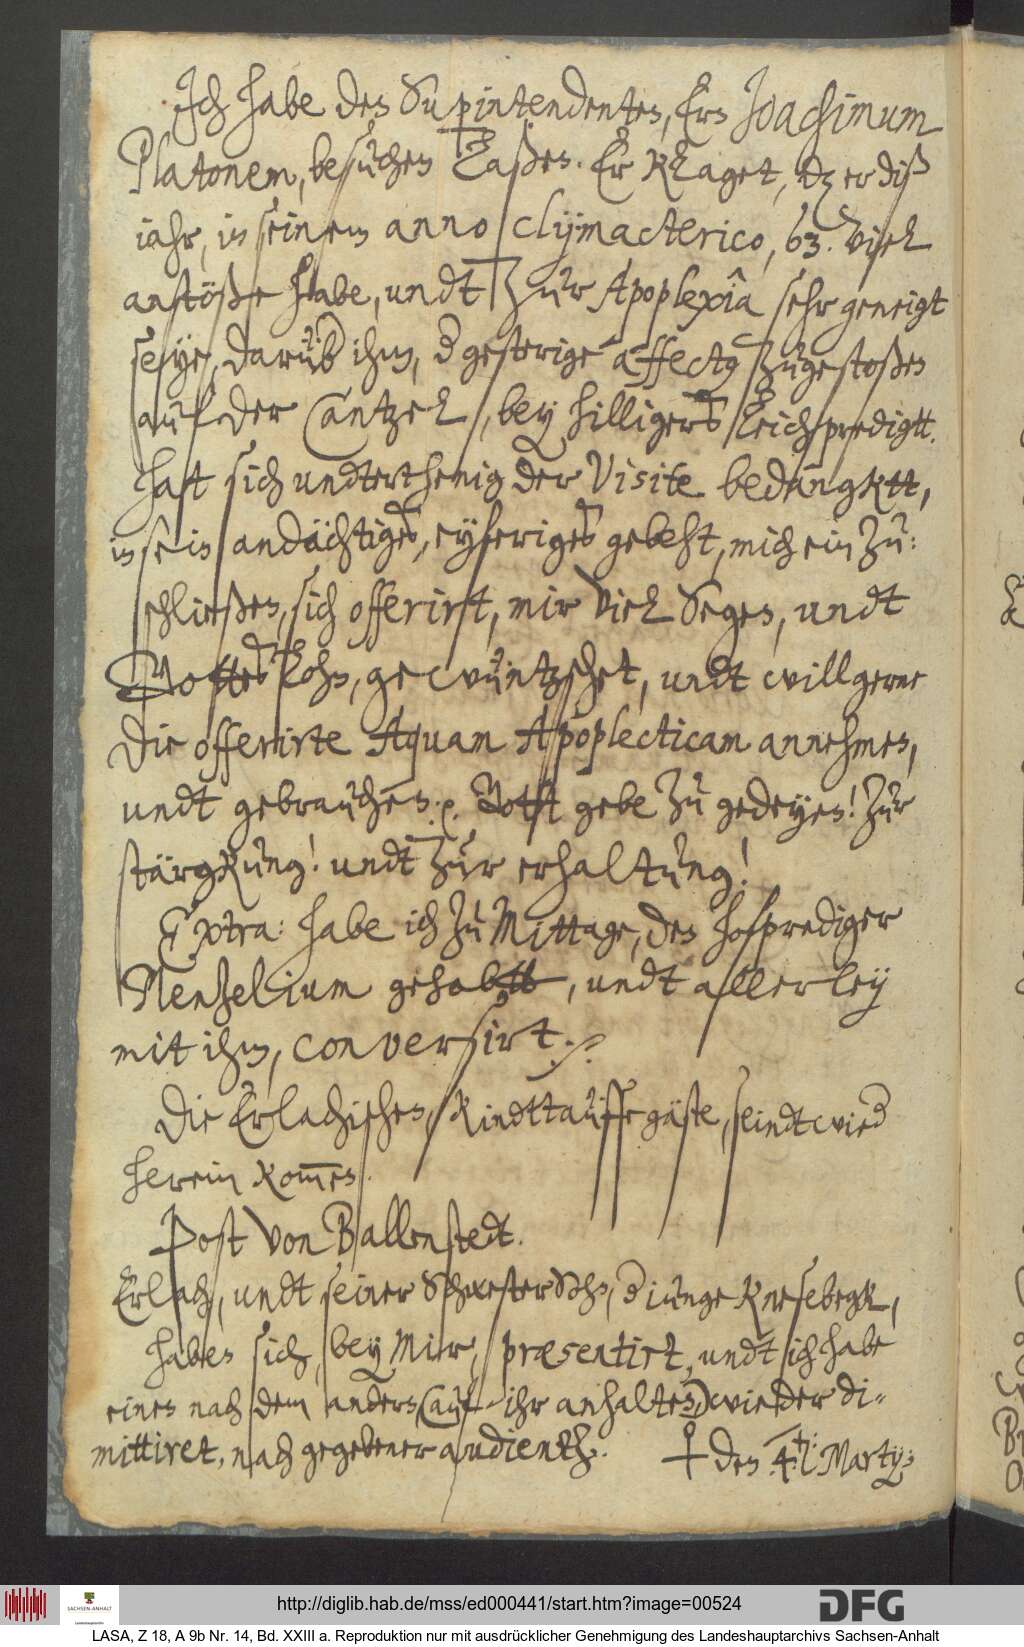 Ich habe den Supintendenten, Ern Joachimum
Platonem, besuchen laßen. Er klaget, dz er diß
iahr, in seinem anno clymacterico, 63. viel
anstöße habe, undt zur Apoplexiâ sehr geneigt
seye, darüb ihm, d gesterige affectq zugestoßen
auf der Cantzel, bey hilligers leichpredigtt.
Hatt sich undterthenig der Visite bedangktt,
in sein andächtiges, eyferiges gebeht, mich ein zu:
schließen, sich offerirt, mir viel Segen, undt
Gottes lohn, gewüntzschet, undt will gerne
die offerirte Aquam Apoplecticam annehmen,
undt gebrauchen. Gott gebe zu gedeyen! zur
stärgkung! undt zur erhaltung!
Extra: habe ich zu Mittage, den hofprediger
Menzelium gehabtt, undt allerley
mit ihm, conversirt.
Die Erlachischen, Kindttauffsgäste, seindt wied
herein kom̄en
Post von Ballenstedt.
Erlach, undt seiner Schwester Sohn, d iunge Knesebegk,
haben sich, bey Mir, præsentirt, undt ich habe
einen nach dem andern, (auf ihr anhalten) wieder di-
mittiret, nach gegebener audientz.
den 4.ten: Martij:
http://diglib.hab.de/mss/ed000441/start.htm?image=00524
SACHSEN-ANHALT
DFG
LASA, Z 18, A 9b Nr. 14, Bd. XXIII a. Reproduktion nur mit ausdrücklicher Genehmigung des Landeshauptarchivs Sachsen-Anhalt